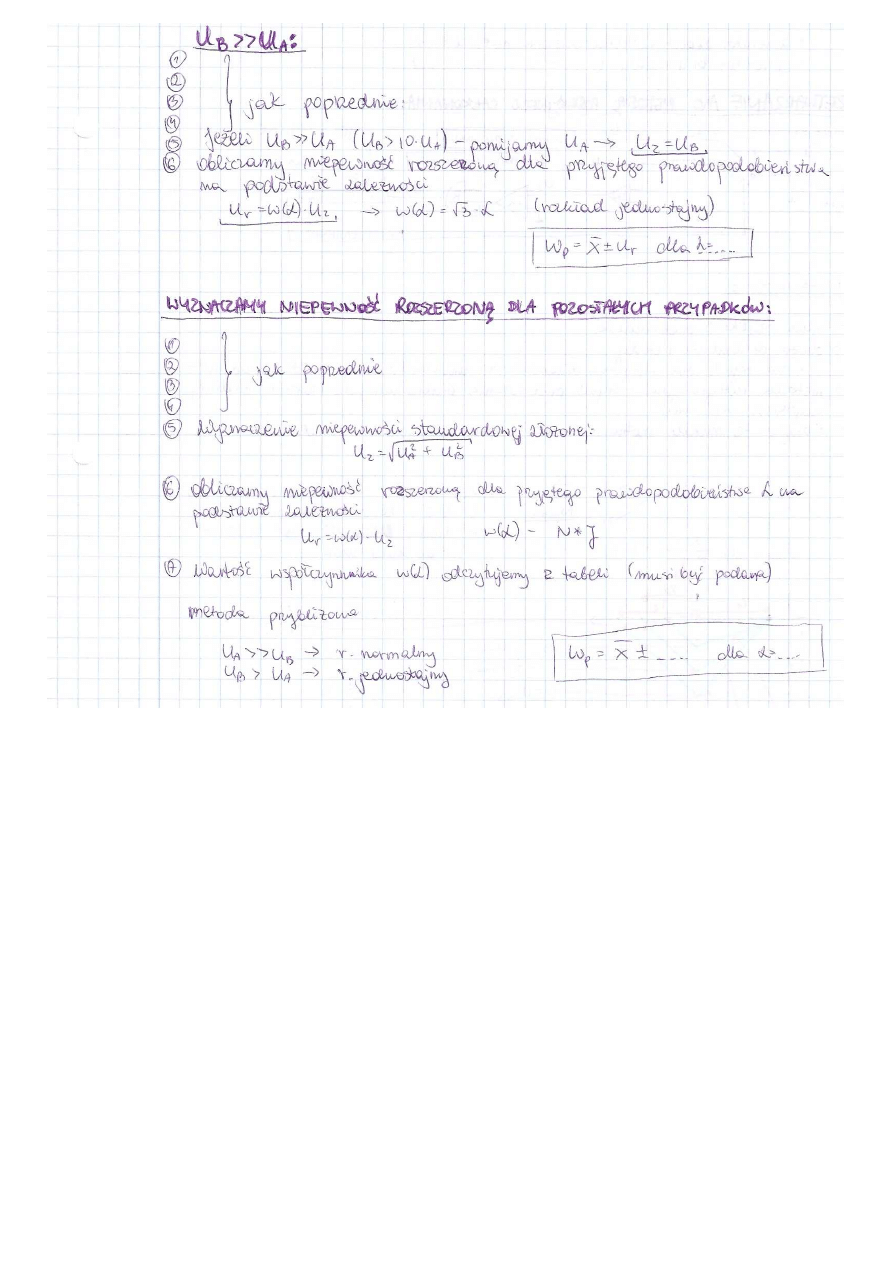 U_B >> U_A:
①
②
③ jak poprzednie:
④
⑤ Jeżeli U_B >> U_A (U_B > 10·U_A) – pomijamy U_A → U_Z = U_B
⑥ obliczamy niepewność rozszerzoną dla przyjętego prawdopodobieństwa
na podstawie zależności
U_r = w(α)·U_Z → w(α) = √3·α (rozkład jednostajny)
W_p = x̄ ± U_r dla α=....
WYZNACZAMY NIEPEWNOŚĆ ROZSZERZONĄ DLA POZOSTAŁYCH PRZYPADKÓW:
①
② jak poprzednie
③
④
⑤ Wyznaczenie niepewności standardowej złożonej:
U_Z = √(U_A² + U_B²)
⑥ obliczamy niepewność rozszerzoną dla przyjętego prawdopodobieństwa α na
podstawie zależności
U_r = w(α)·U_Z w(α) – N*J
⑦ Wartość współczynnika w(α) odczytujemy z tabeli (musi być podana)
metoda przybliżona
U_A >> U_B → r. normalny
U_B > U_A → r. jednostajny
W_p = x̄ ± ..... dla α=....